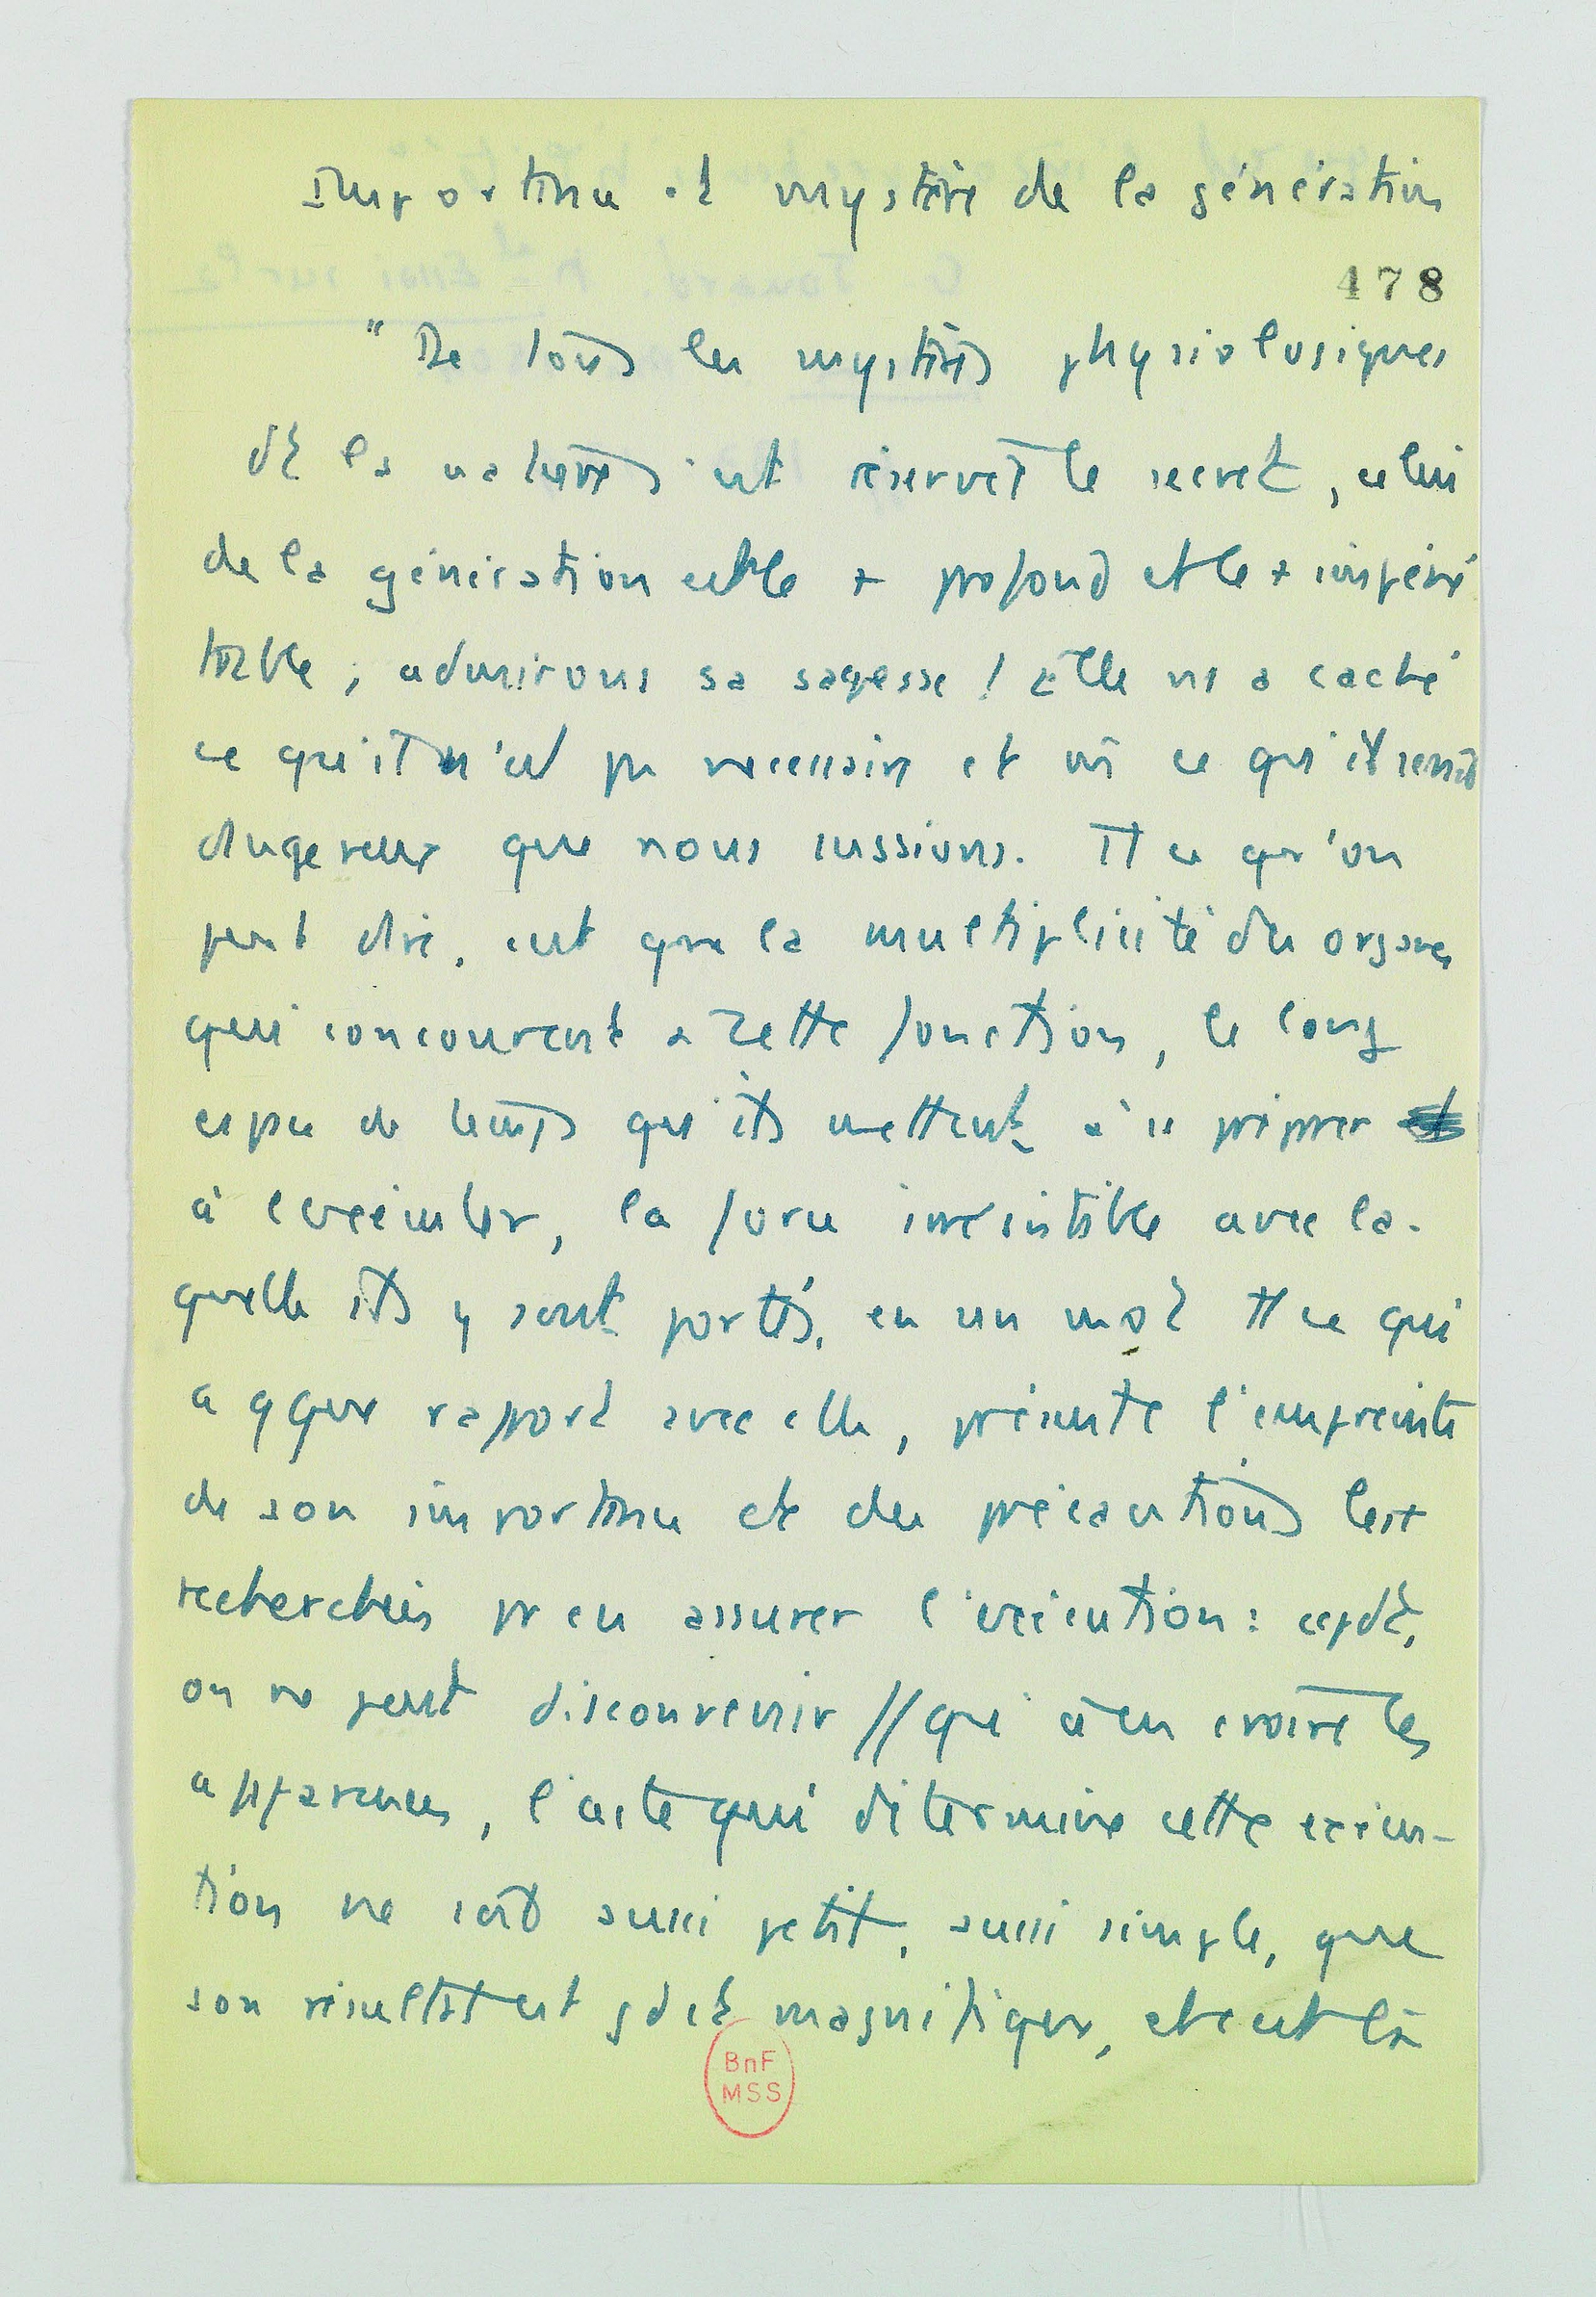 Importance et mystère de la génération
478
" De tous les mystères physiologiques
dt la nature s'est réservé le secret, celui
de la génération est le + profond et le + impéné
trable ; admirons sa sagesse ! Elle ns a caché
ce qu'il n'est pas necessaire et ce qu'il serait
dangereux que nous sussions. Tt ce qu'on
peut dire, c'est que la multiplicité des organes
qui concourent à cette fonction, le long
espace de temps qu'ils mettent à se préparer
à l'exécuter, la force irrésistible avec la-
quelle ils y sont portés, en un mot tt ce qui
a qque rapport avec elle, présente l'empreinte
de son importance et des précautions les +
recherchées pr en assurer l'exécution : cepdt,
on ne peut disconvenir // qu'à en croire les
apparences, l'acte qui détermine cette exécu-
tion ne soit aussi petit, aussi simple, que
son résultat est gd et magnifique, et c'est là
BnF
MSS